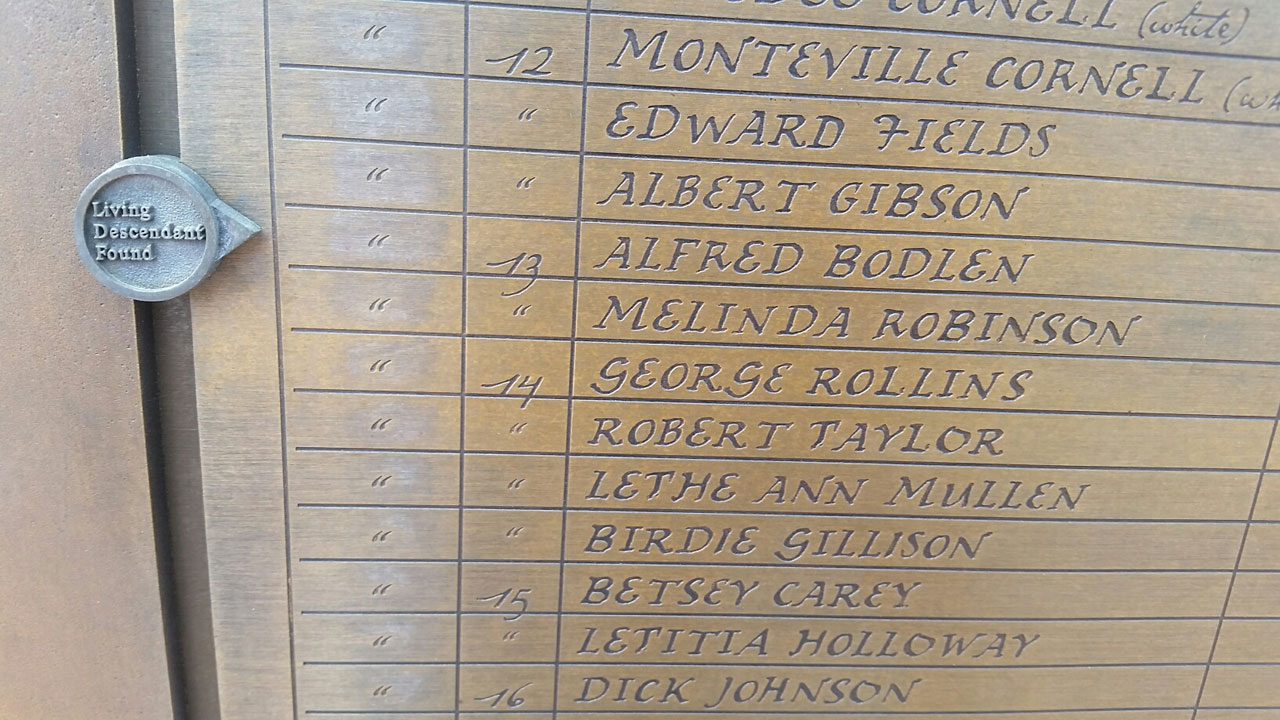 CORNELL (white)
“ 12 MONTEVILLE CORNELL
“ “ EDWARD FIELDS
“ “ ALBERT GIBSON
Living
Descendant
Found
“ 13 ALFRED BODLEN
“ “ MELINDA ROBINSON
“ 14 GEORGE ROLLINS
“ “ ROBERT TAYLOR
“ “ LETHE ANN MULLEN
“ “ BIRDIE GILLISON
“ 15 BETSEY CAREY
“ “ LETITIA HOLLOWAY
“ 16 DICK JOHNSON